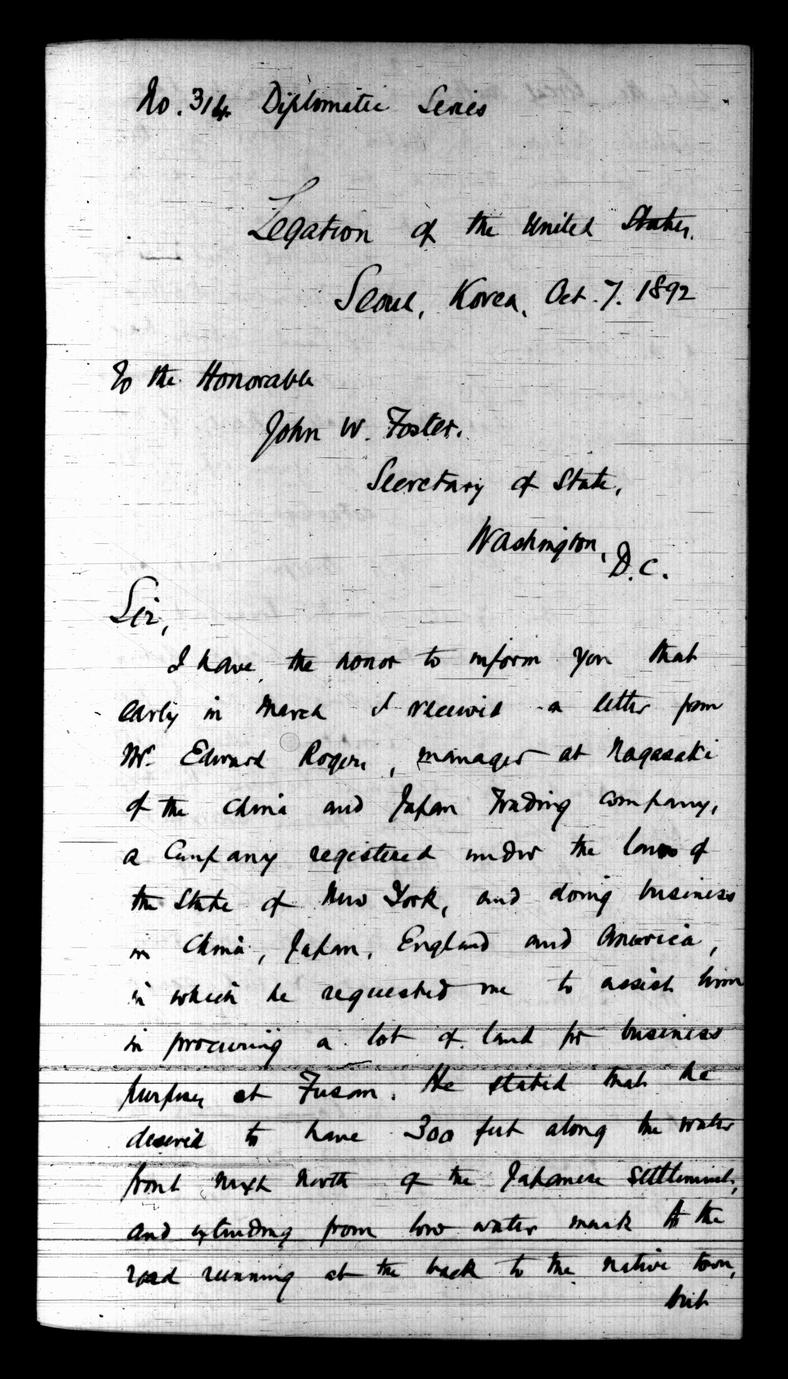 No. 314. Diplomatic Series
Legation of the United States,
Seoul, Korea, Oct. 7. 1892
To the Honorable
John W. Foster,
Secretary of State,
Washington, D.C.
Sir,
I have the honor to inform you that
early in March I received a letter from
Mr. Edward Rogers, manager at Nagasaki
of the China and Japan Trading Company,
a Company registered under the laws of
the State of New York, and doing business
in China, Japan, England and America,
in which he requested me to assist him
in procuring a lot of land for business
purposes at Fusan. He stated that he
desired to have 300 feet along the water
front next north of the Japanese Settlement,
and extending from low water mark to the
road running at the back to the native town,
but